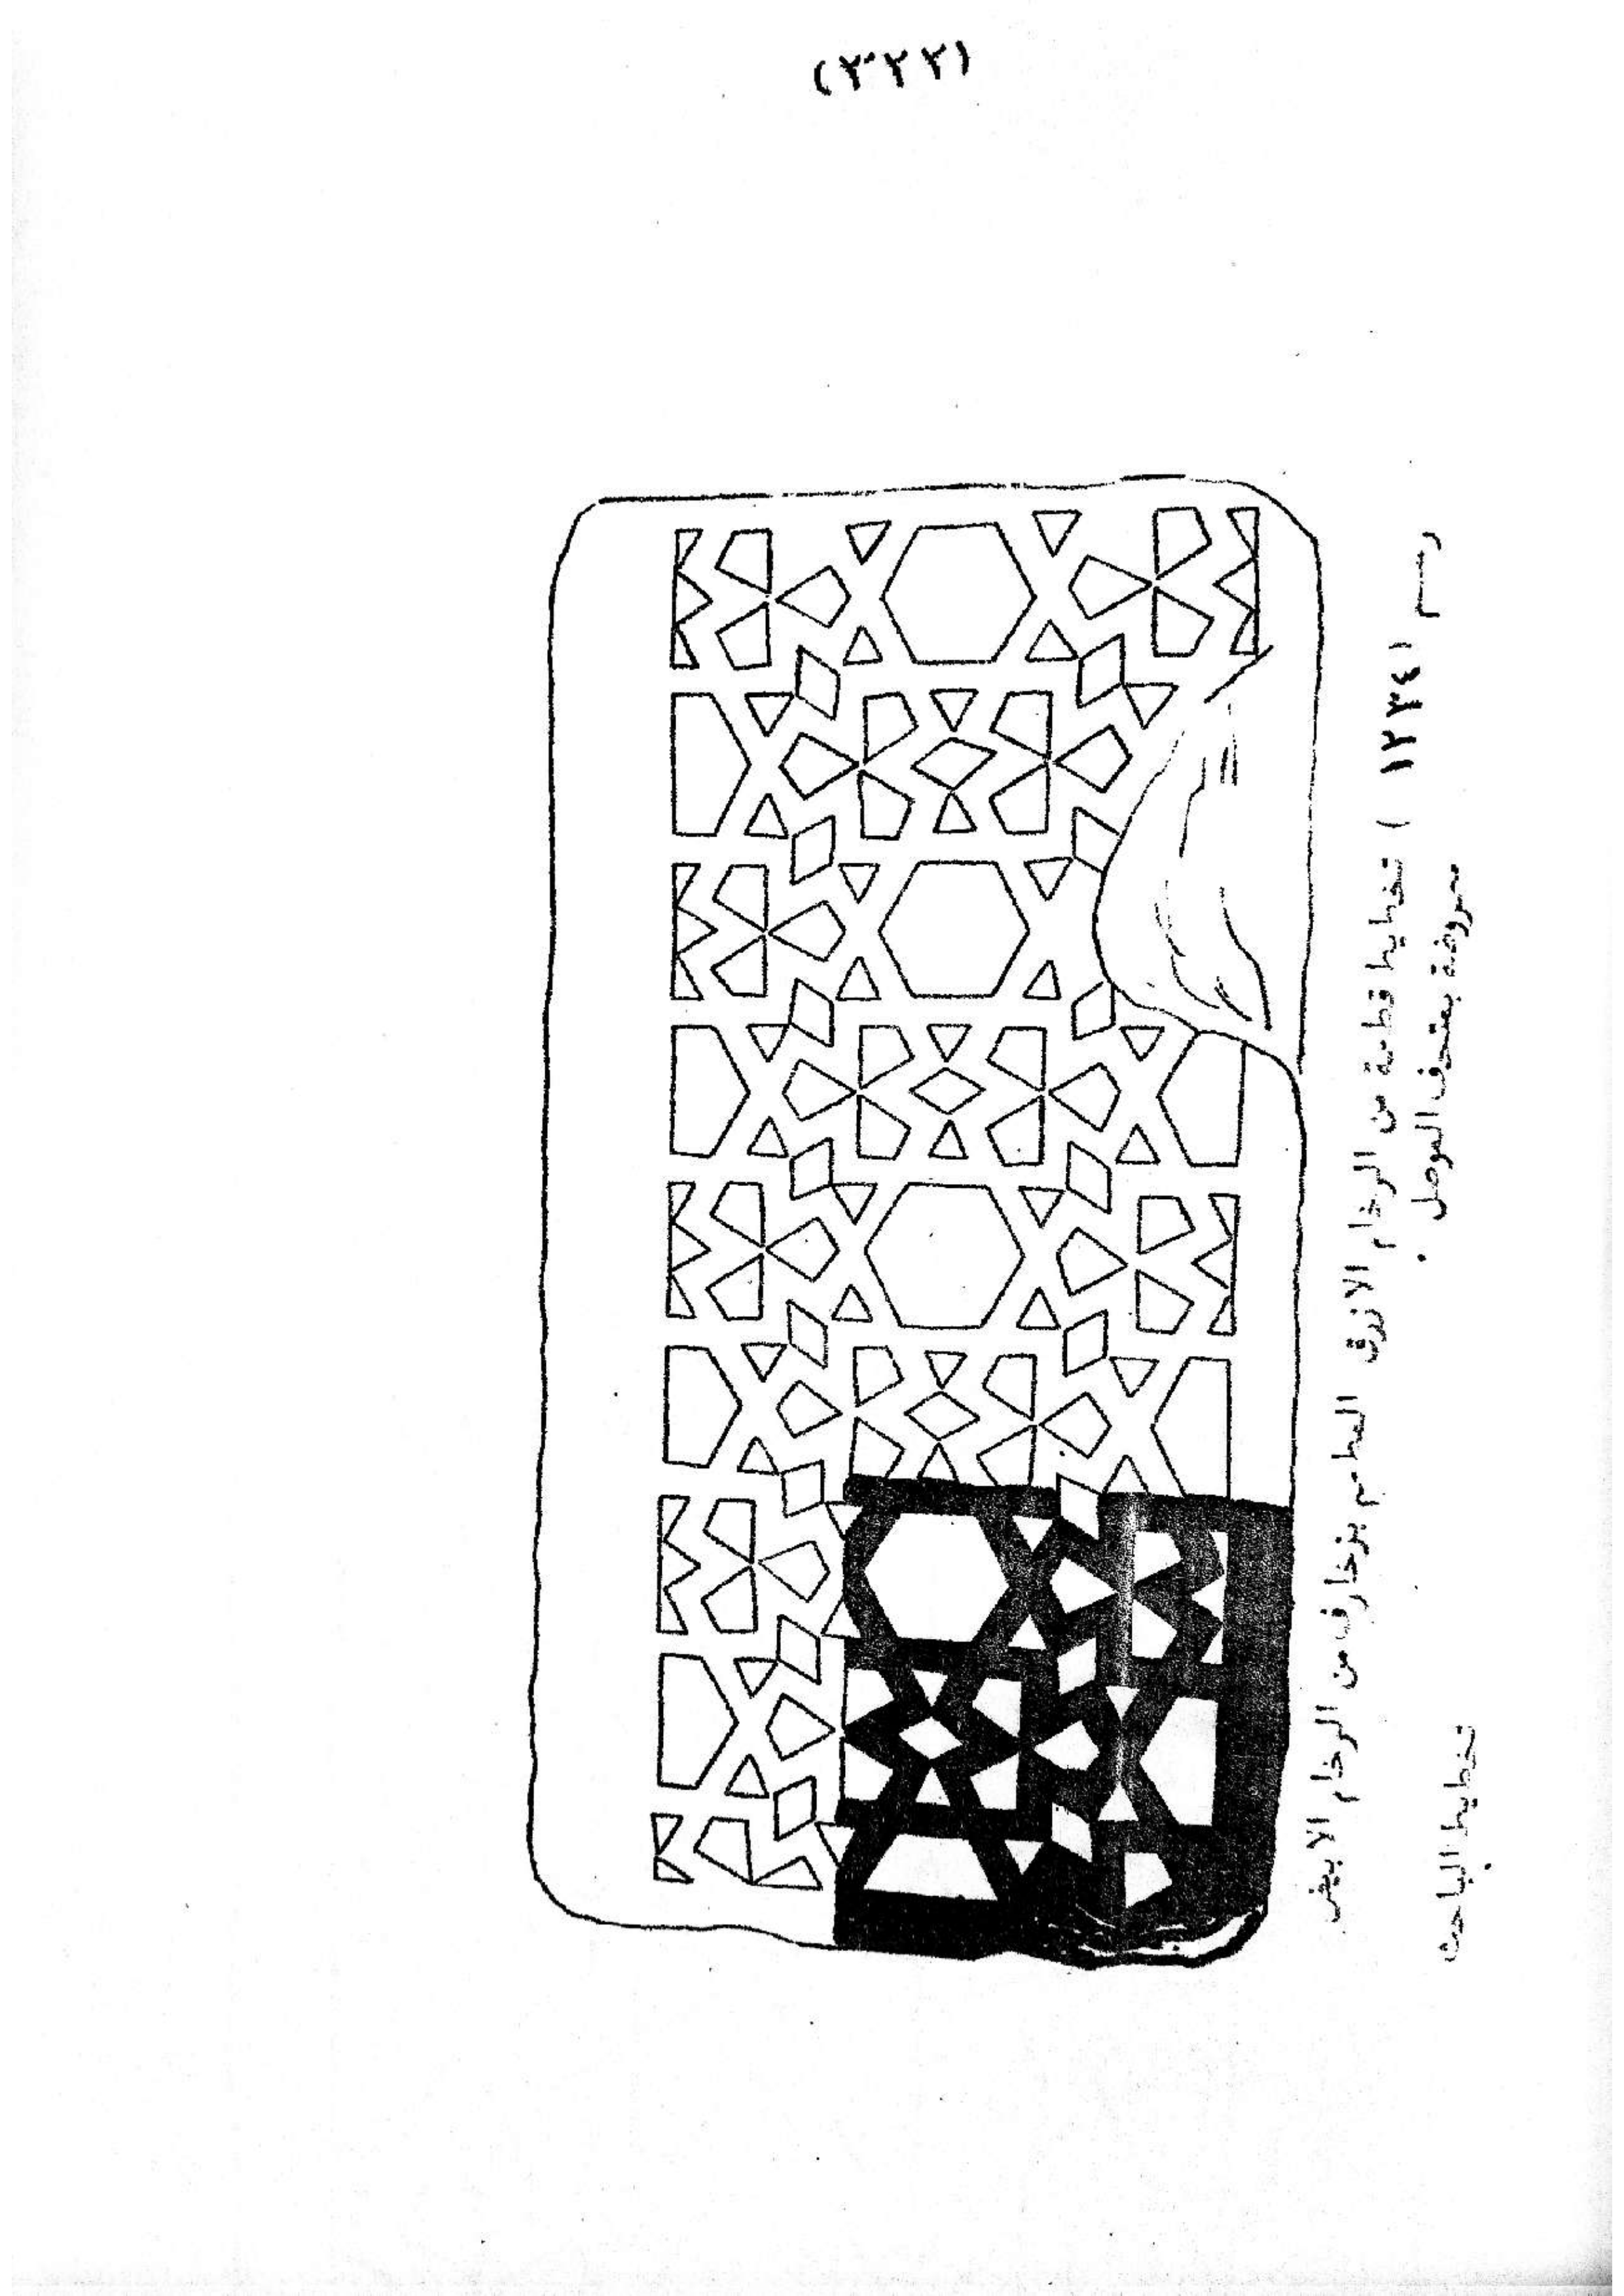 (٣٢٢)
رسم (١٢٣٤) تخطيط قطعة من الرخام الازرق المطعم بزخارف من الرخام الابيض
معروضة بمتحف الموصل .
تخطيط الباحث